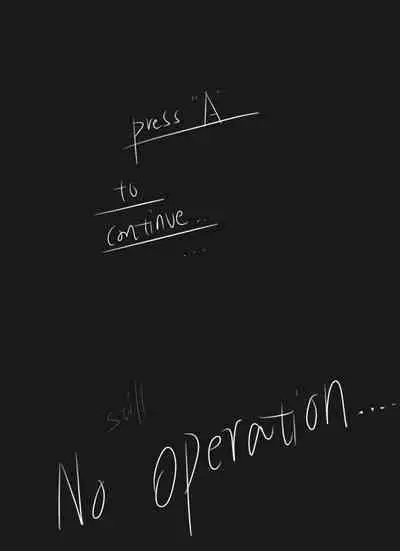 press "A"
to
continue...
....
still
No operation....